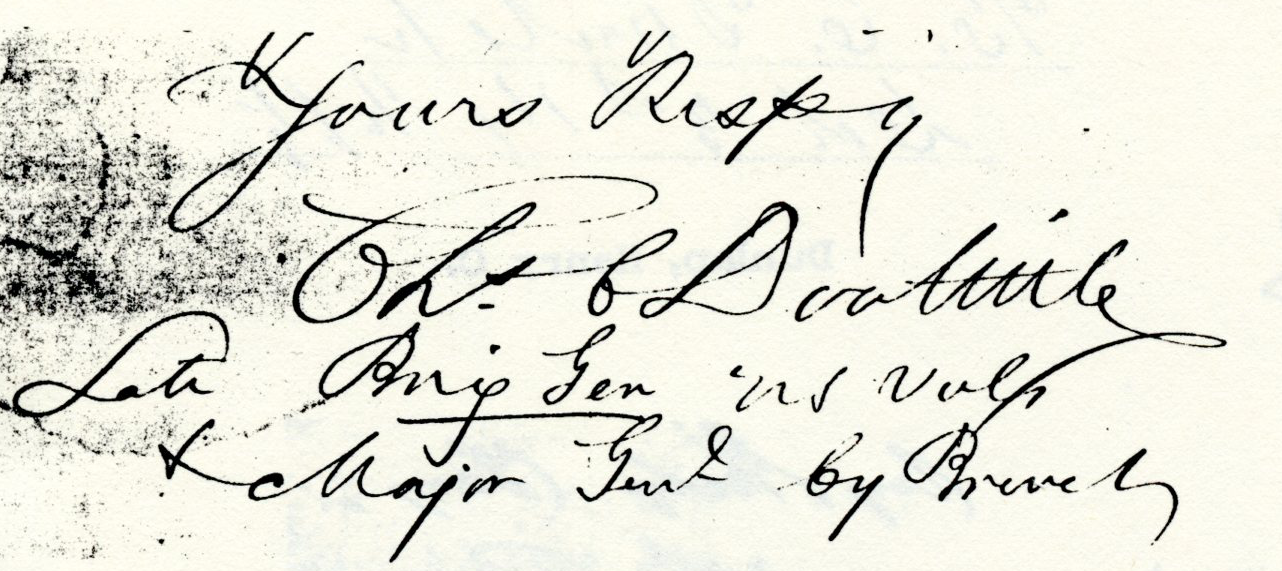 Yours Respy
Chs. C Doolittle
Late Brig Gen US Vols
& Major Genl by Brevet